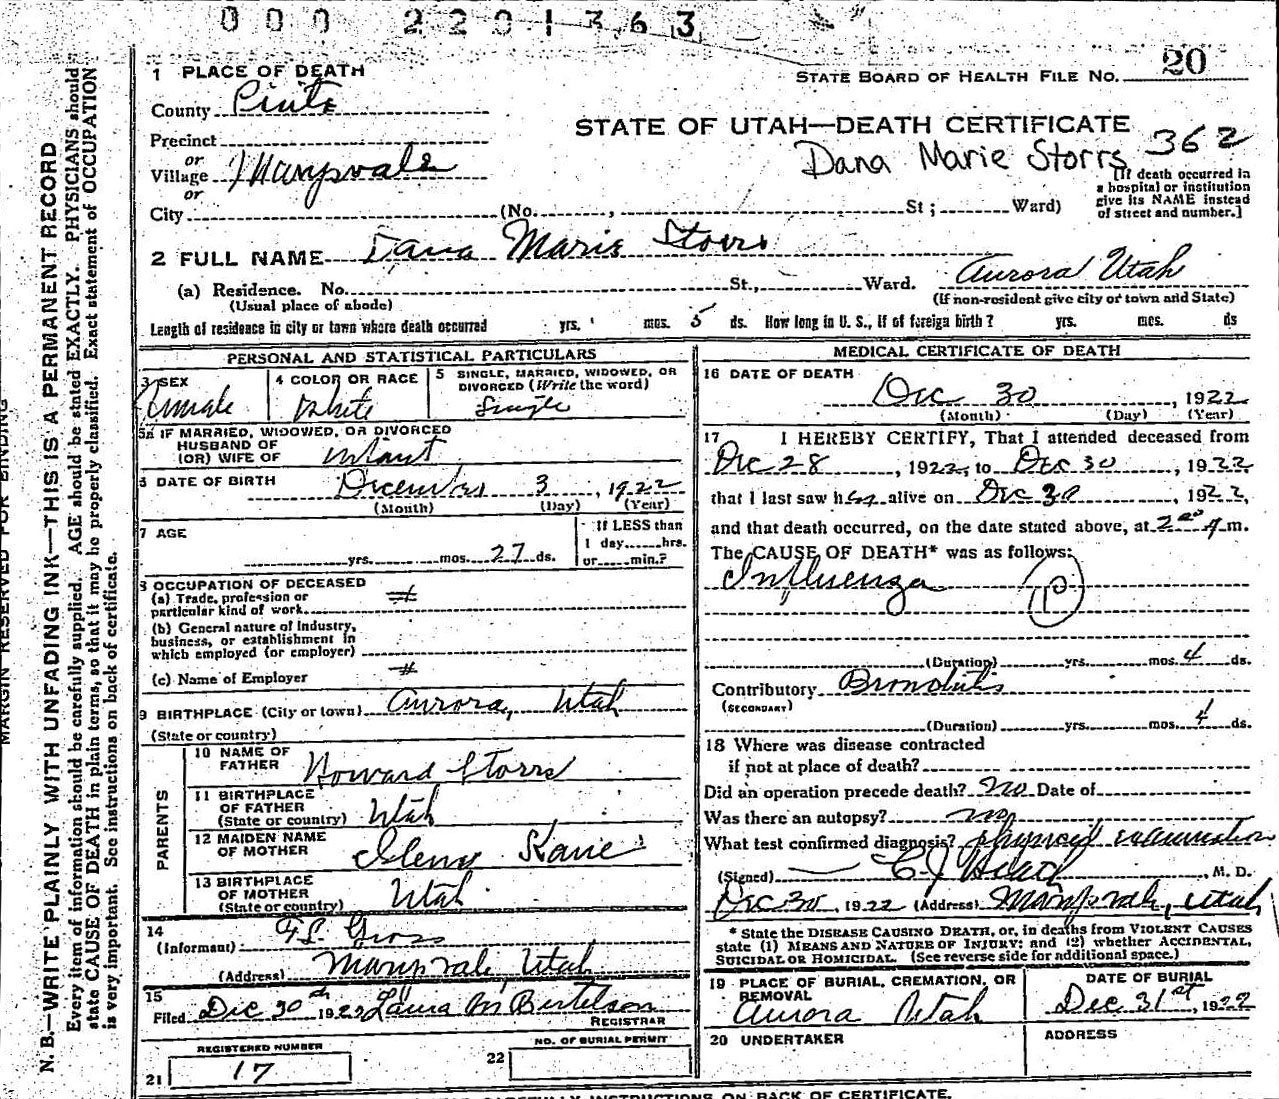 000 2201363
20
STATE BOARD OF HEALTH FILE NO.
1 PLACE OF DEATH
County Piute
STATE OF UTAH—DEATH CERTIFICATE
362
Dana Marie Storrs
Precinct
or
Village Marysvale
or
City (No. , St; Ward)
[If death occurred in
a hospital or institution
give its NAME instead
of street and number.]
2 FULL NAME Dana Marie Storrs
(a) Residence. No. St., Ward. Aurora Utah
(Usual place of abode) (If non-resident give city or town and State)
Length of residence in city or town where death occurred yrs. mos. 5 ds. How long in U. S., if of foreign birth? yrs. mos. ds
PERSONAL AND STATISTICAL PARTICULARS
3 SEX
Female
4 COLOR OR RACE
White
5 SINGLE, MARRIED, WIDOWED, OR
DIVORCED (Write the word)
Single
5a IF MARRIED, WIDOWED, OR DIVORCED
HUSBAND OF
(OR) WIFE OF infant
6 DATE OF BIRTH December 3, 1922
(Month) (Day) (Year)
7 AGE
yrs. mos. 27 ds.
If LESS than
1 day hrs.
or min.?
8 OCCUPATION OF DECEASED
(a) Trade, profession or
particular kind of work
(b) General nature of Industry,
business, or establishment in
which employed (or employer)
(c) Name of Employer
9 BIRTHPLACE (City or town) Aurora, Utah
(State or country)
PARENTS
10 NAME OF
FATHER Howard Storrs
11 BIRTHPLACE
OF FATHER
(State or country) Utah
12 MAIDEN NAME
OF MOTHER
13 BIRTHPLACE
OF MOTHER
(State or country) Utah
14
(Informant) Gross
(Address) Marysvale Utah
15
Filed Dec 30th 1922 Laura M Bertelson
REGISTRAR
21
REGISTERED NUMBER
17
22
NO. OF BURIAL PERMIT
MEDICAL CERTIFICATE OF DEATH
16 DATE OF DEATH
Dec 30, 1922
(Month) (Day) (Year)
17 I HEREBY CERTIFY, That I attended deceased from
Dec 28, 1922, to Dec 30, 1922
that I last saw her alive on Dec 30, 1922,
and that death occurred, on the date stated above, at 2 00 A m.
The CAUSE OF DEATH* was as follows:
Influenza
(Duration) yrs. mos. 4 ds.
Contributory Bronchitis
(SECONDARY)
(Duration) yrs. mos. 4 ds.
18 Where was disease contracted
if not at place of death?
Did an operation precede death? no Date of
Was there an autopsy? no
What test confirmed diagnosis? physical examination
(Signed) C. J. M. D.
Dec 30, 1922 (Address) Marysvale, Utah
* State the DISEASE CAUSING DEATH, or, in deaths from VIOLENT CAUSES
state (1) MEANS AND NATURE OF INJURY; and (2) whether ACCIDENTAL,
SUICIDAL OR HOMICIDAL. (See reverse side for additional space.)
19 PLACE OF BURIAL, CREMATION, OR
REMOVAL
Aurora Utah
DATE OF BURIAL
Dec 31st, 1922
20 UNDERTAKER
ADDRESS
CAREFULLY INSTRUCTIONS ON BACK OF CERTIFICATE.
MARGIN RESERVED FOR BINDING
N. B.—WRITE PLAINLY WITH UNFADING INK—THIS IS A PERMANENT RECORD
Every item of information should be carefully supplied. AGE should be stated EXACTLY. PHYSICIANS should
state CAUSE OF DEATH in plain terms, so that it may be properly classified. Exact statement of OCCUPATION
is very important. See instructions on back of certificate.